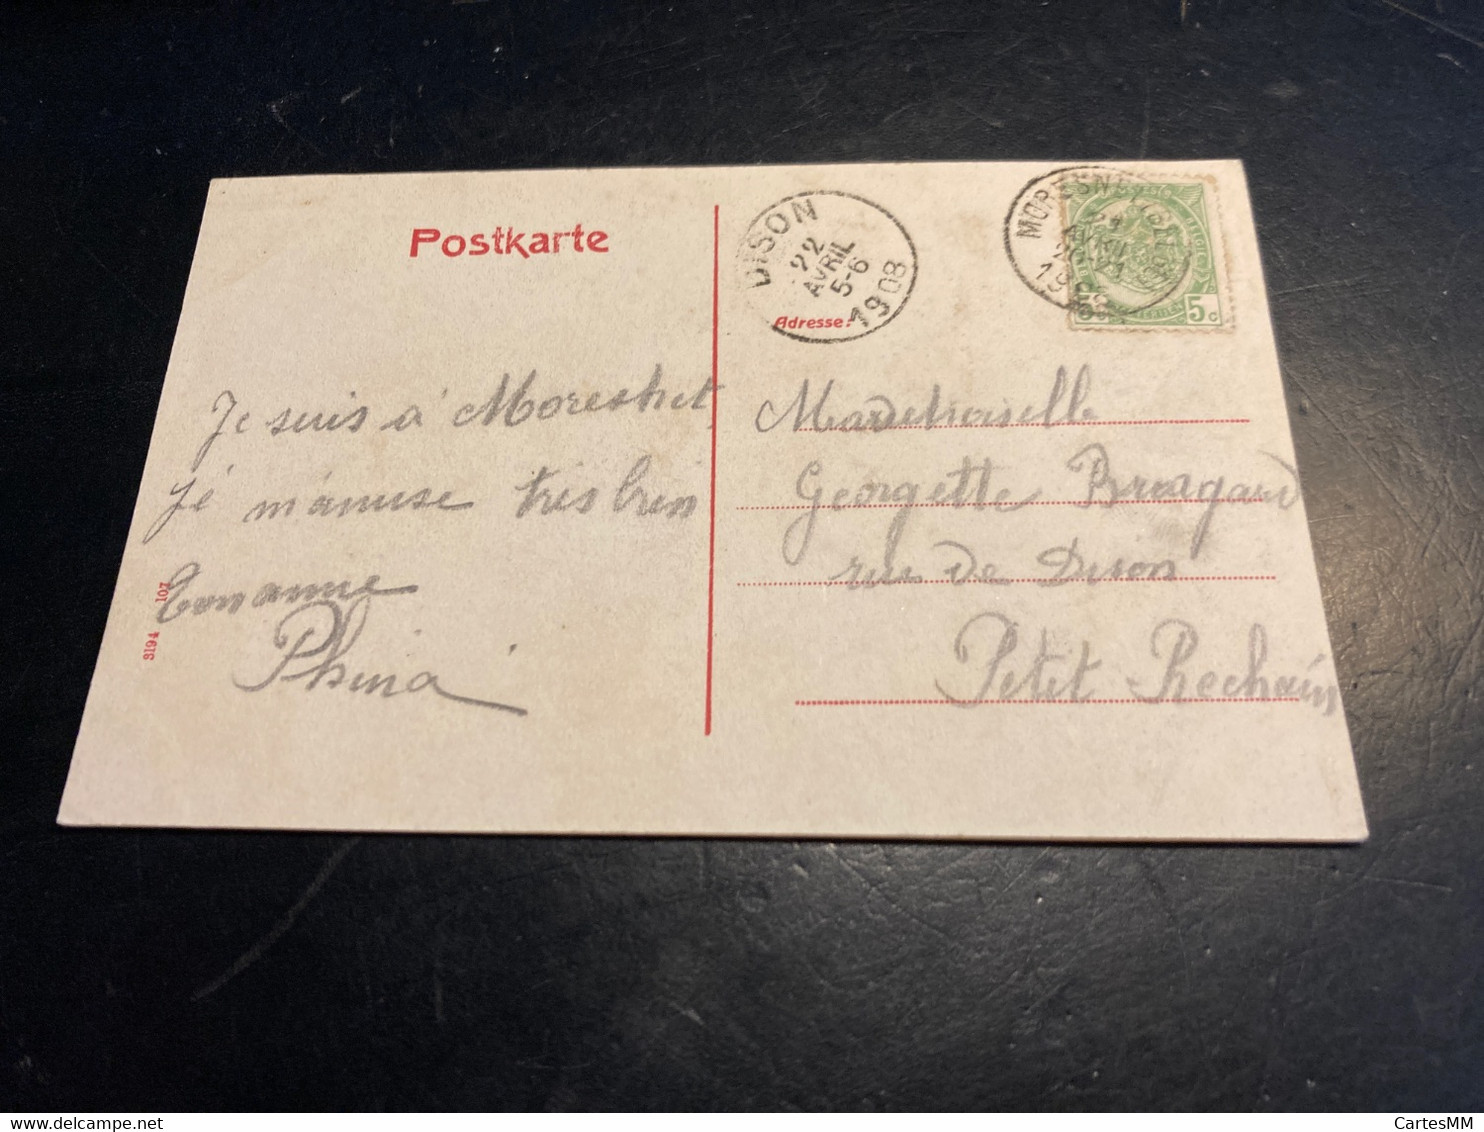 Postkarte
DISON
22
AVRIL
5-6
1908
Adresse:
MORESNET
21
AVRIL
1908
5 C
Je suis à Moreshet
Jé m'amuse très bien
Ton amie
Phina
3194 107
Mademoiselle
Georgette Bragard
rue de Dison
Petit-Rechain
CartesMM